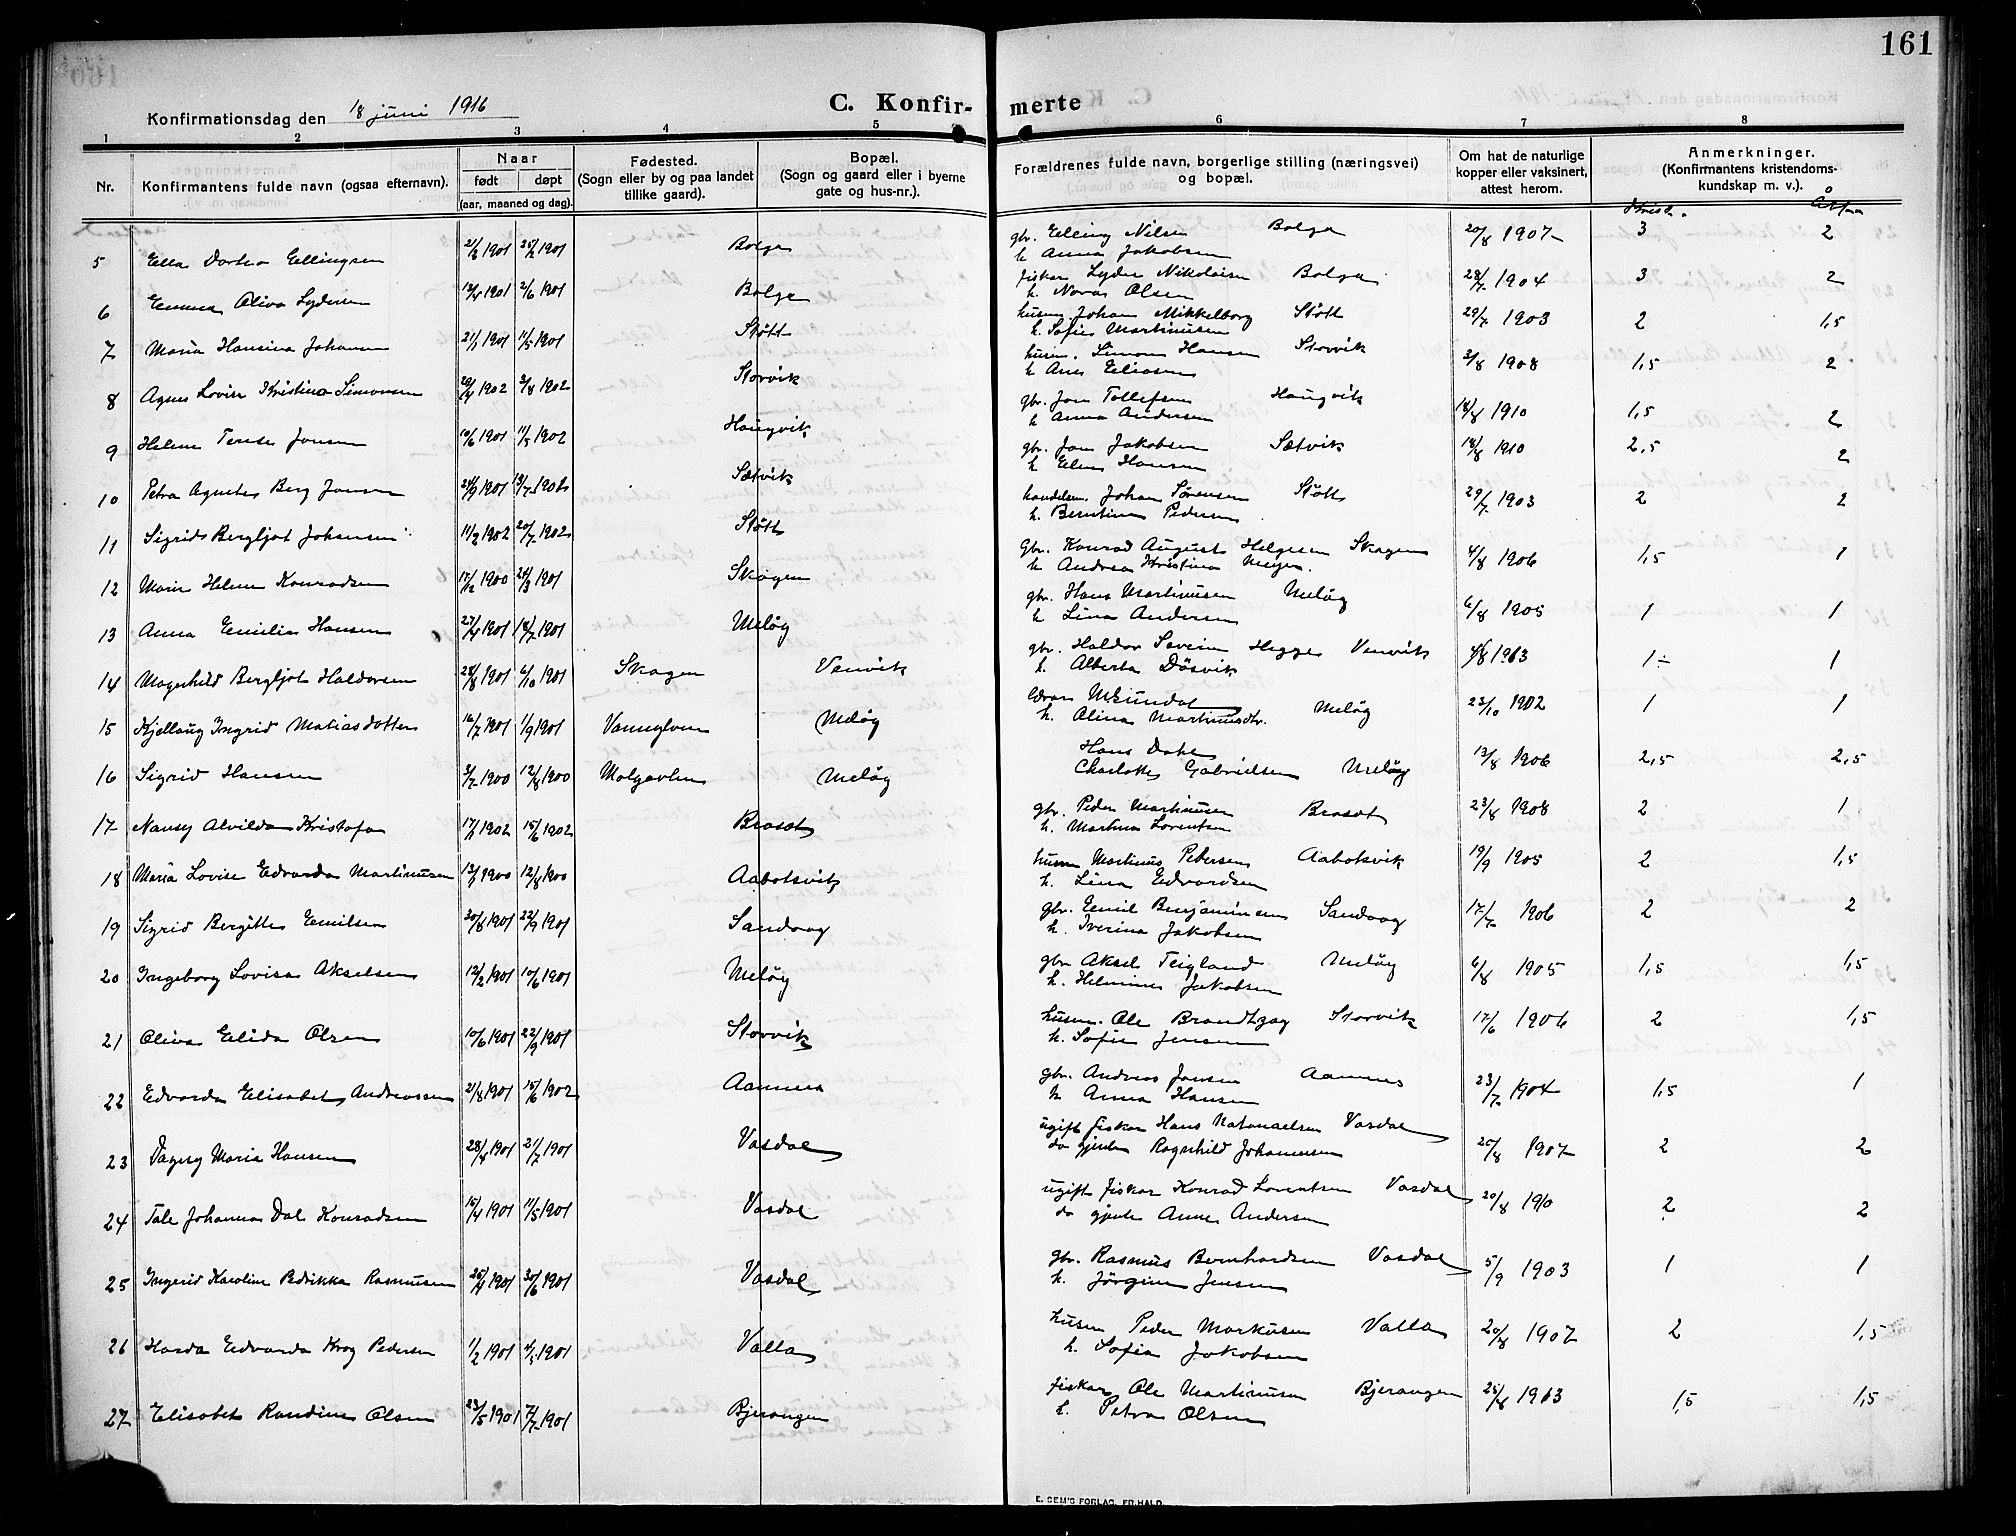 161
Konfirmationsdag den 18 juni 1916
C. Konfirmerte
1 2 3 4 5 6 7 8
Nr.
Konfirmantens fulde navn (ogsaa efternavn).
Naar
født døpt
(aar, maaned og dag).
Fødested.
(Sogn eller by og paa landet
tillike gaard).
Bopæl.
(Sogn og gaard eller i byerne
gate og hus-nr.).
Forældrenes fulde navn, borgerlige stilling (næringsvei)
og bopæl.
Om hat de naturlige
kopper eller vaksinert,
attest herom.
Anmerkninger.
(Konfirmantens kristendoms-
kundskap m. v.).
5 Ella Dortea Ellingsen 21/2 1901 25/2 1901 Bolga gbr. Elling Nilsen Bolga 20/8 1907 3 2
h. Anna Jakobsen
6 Emma Oliva Lydersen 13/4 1901 2/6 1901 Bolga fisker Lyder Nikolaisen Bolga 28/7 1904 3 2
h. Nora Olsen
7 Maria Hansina Johansen 21/1 1901 11/5 1901 Støtt husm. Johan Mikkelborg Støtt 29/7 1903 2 1,5
h. Sofie Martinusen
8 Agnes Lovise Kristina Simonsen 20/4 1902 3/8 1902 Storvik husm. Simon Hansen Storvik 3/8 1908 1,5 2
h. Ane Eliasen
9 Helene Terese Jonsen 10/6 1901 11/5 1902 Haugvik gbr. Jon Tollefsen Haugvik 18/8 1910 1,5 2
h. Anna Andersen
10 Petra Agnetes Berg Jonsen 24/9 1901 13/7 1902 Sætvik gbr. Jon Jakobsen Sætvik 18/8 1910 2,5 2
h. Elen Hansen
11 Sigrid Bergljot Johansen 11/2 1902 20/7 1902 Støtt handelsm. Johan Sørensen Støtt 29/7 1903 2 2
h. Berntine Pedersen
12 Marie Helene Konradsen 15/12 1900 24/3 1901 Skagen Gbr. Konrad August Helgesen Skagen 4/8 1906 1,5 1
h. Andrea Kristina Meyer.
13 Anna Emilie Hansen 27/4 1901 14/7 1901 Meløy gbr. Hans Martinusen Meløy 6/8 1905 1 1
h. Lina Andersen
14 Magnhild Bergljot Haldorsen 24/8 1901 6/10 1901 Skagen Venvik gbr. Haldor Severin Hegge Venvik 1913 1÷ 1
h. Alberta Døsvik
15 Kjellaug Ingrid Matiasdotter 16/7 1901 1/9 1901 Meløy Meløy 23/10 1902 1 1
h. Alina Martinusdtr.
16 Sigrid Hansen 3/7 1900 12/8 1900 Meløy Hans Dahl 13/8 1906 2,5 2,5
Charlotte Gabrielsen Meløy
17 Nansy Alvilda Kristofa 17/1 1902 15/6 1902 Brasæt gbr. Peder Martinusen Brasæt 23/8 1908 2 1
h. Martina Lorentsen
18 Maria Lovise Edvarda Martinusen 13/7 1900 12/8 1900 Aabotsvik husm Martinus Petersen Aabotsvik 19/9 1905 2 1,5
h. Lina Edvardsen
19 Sigrid Bergitte Emilsen 30/8 1901 22/9 1901 Sandvag gbr. Emil Benjaminsen Sandvag 17/7 1906 2 2
h. Iverina Jakobsen
20 Ingeborg Lovise Akselsen 12/2 1901 10/6 1901 Meløy gbr Aksel Teigland Meløy 6/8 1905 1,5 1,5
h. Helmine Jakobsen
21 Oliva Elida Olsen 10/6 1901 22/9 1901 Storvik husm. Ole Brandtzæg Storvik 17/6 1906 2 1,5
h. Sofie Jensen
22 Edvarda Elisabet Andreassen 21/8 1901 15/6 1902 Aamnes gbr. Andreas Jonsen Aamnes 23/7 1904 1,5 1
h. Anna Hansen
23 Dagny Maria Hansen 28/4 1901 21/7 1901 Vasdal ugift fisker Hans Natanaelsen Vasdal 20/8 1907 2 2
do gjente Ragnhild Johannesen
24 Tale Johanna Dal Konradsen 15/4 1901 11/5 1901 Vasdal ugift fisker Konrad Lorentsen Vasdal 20/8 1910 2 2
do gjente Anne Andersen
25 Ingerid Karoline Bdrikka Rasmusen 25/4 1901 30/6 1901 Vasdal gbr. Rasmus Bernhardsen Vasdal 5/9 1903 1 1
h. Jörgine Jensen
26 Harda Edvarda Krog Pedersen 1/2 1901 4/5 1901 Valla husm Peder Markusen Valla 20/8 1907 2 1,5
h. Sofia Jakobsen
27 Elisabet Randine Olsen 23/5 1901 21/7 1901 Bjerangen fisker Ole Martinusen Bjerangen 25/8 1913 1,5 1,5
h. Petra Olsen
E. SEM'S FORLAG, FR.HALD.